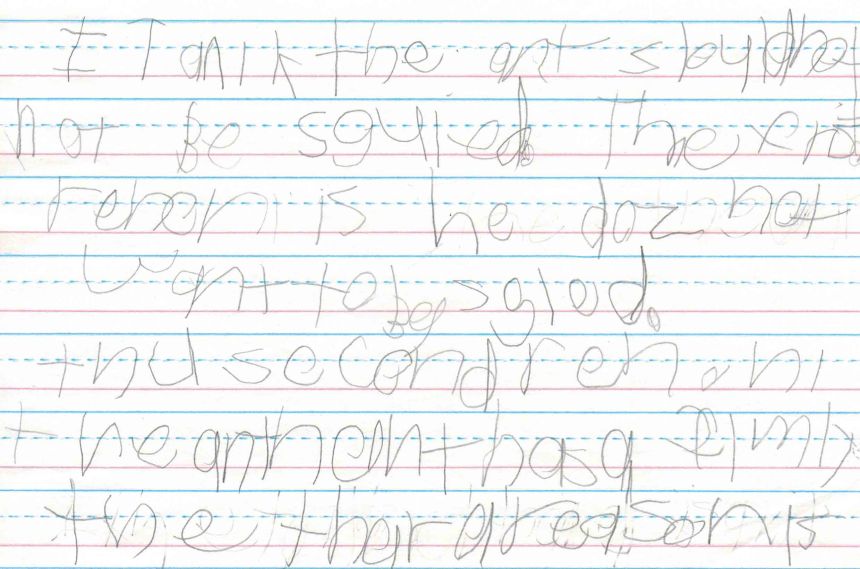 I Tanik the ant sbuldhet
not be sgyied. The xrid
rehen is he doz not
want to be sgiod.
thu second rehan i
the anthent has a fimly
the ther a reason is